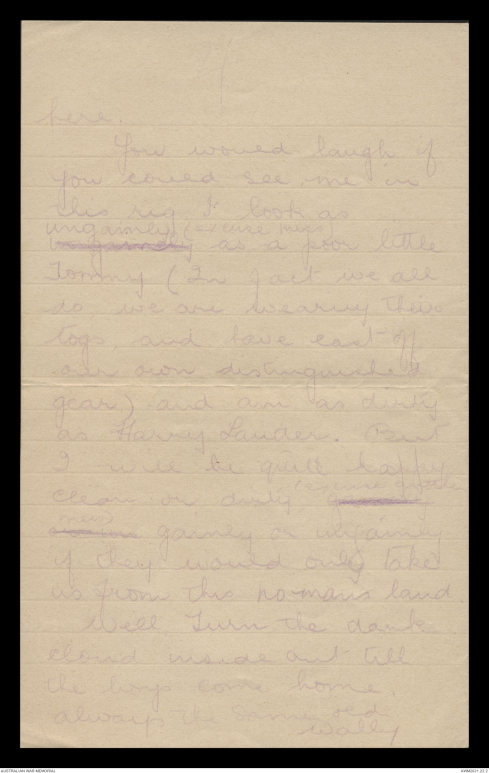 here.
You would laugh if
you could see me in
this rig I look as
ungainly (
as a poor little
Tommy (In fact we all
do we are wearing their
togs, and have cast off
our own distinguished
gear) and am as dirty
as Harry Lauder. But
I will be quite happy
clean or dirty
gainly or ungainly
if they would only take
us from this no-mans land.
Well Turn the dark
cloud inside out till
the boys come home.
always the same old
Wally
AUSTRALIAN WAR MEMORIAL